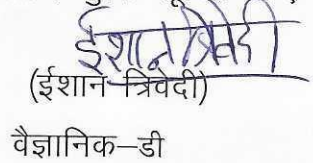 ईशान त्रिवेदी
(ईशान त्रिवेदी)
वैज्ञानिक–डी